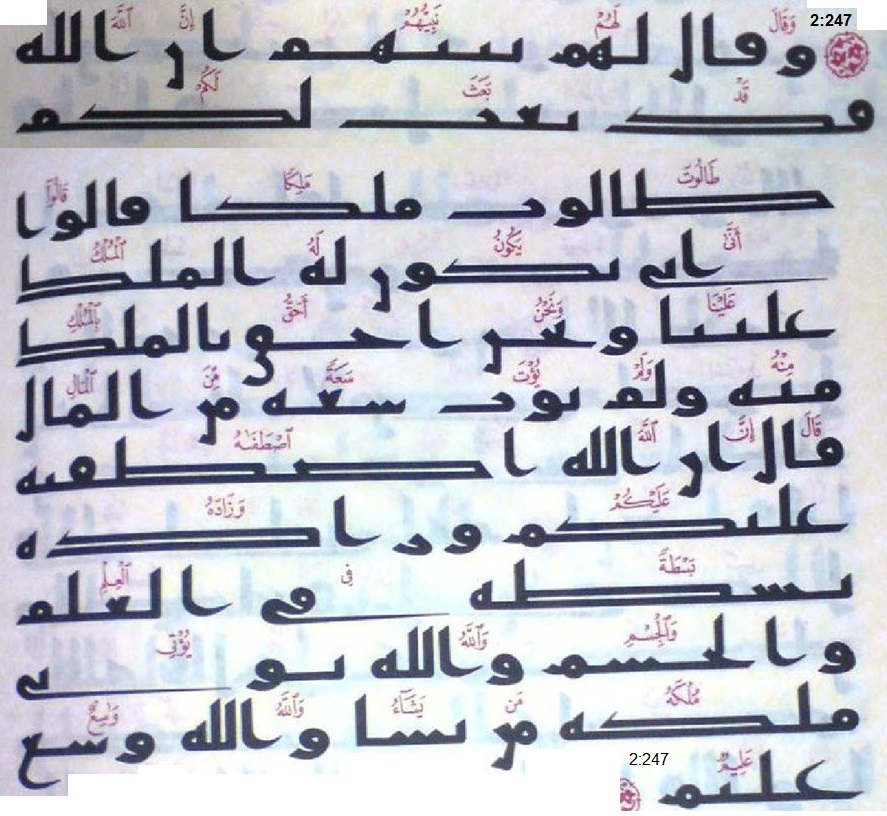 وَقَالَ لَهُمْ نَبِيُّهُمْ إِنَّ ٱللَّهَ 2:247
وقال لهم نبيهم ان الله
قَدْ بَعَثَ لَكُمْ
قد بعث لكم
طَالُوتَ مَلِكًا قَالُوٓا۟
طالوت ملكا قالوا
أَنَّىٰ يَكُونُ لَهُ ٱلْمُلْكُ
انى يكون له الملك
عَلَيْنَا وَنَحْنُ أَحَقُّ بِٱلْمُلْكِ
علينا ونحن احق بالملك
مِنْهُ وَلَمْ يُؤْتَ سَعَةً مِّنَ ٱلْمَالِ
منه ولم يوت سعه من المال
قَالَ إِنَّ ٱللَّهَ ٱصْطَفَىٰهُ
قال ان الله اصطفيه
عَلَيْكُمْ وَزَادَهُۥ
عليكم وزاده
بَسْطَةً فِى ٱلْعِلْمِ
بسطه في العلم
وَٱلْجِسْمِ وَٱللَّهُ يُؤْتِى
والجسم والله يوتى
مُلْكَهُۥ مَن يَشَآءُ وَٱللَّهُ وَٰسِعٌ
ملكه من يشا والله وسع
عَلِيمٌ 2:247
عليم